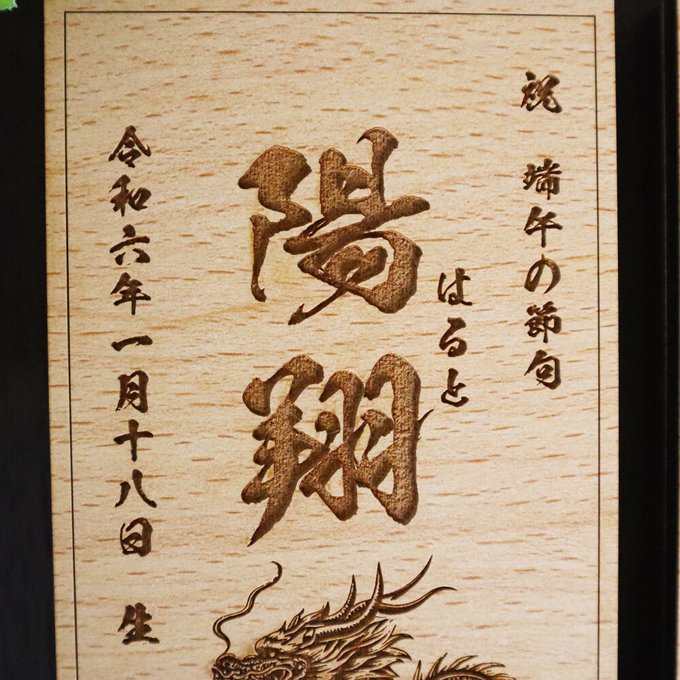 祝 端午の節句
はると
陽翔
令和六年一月十八日 生